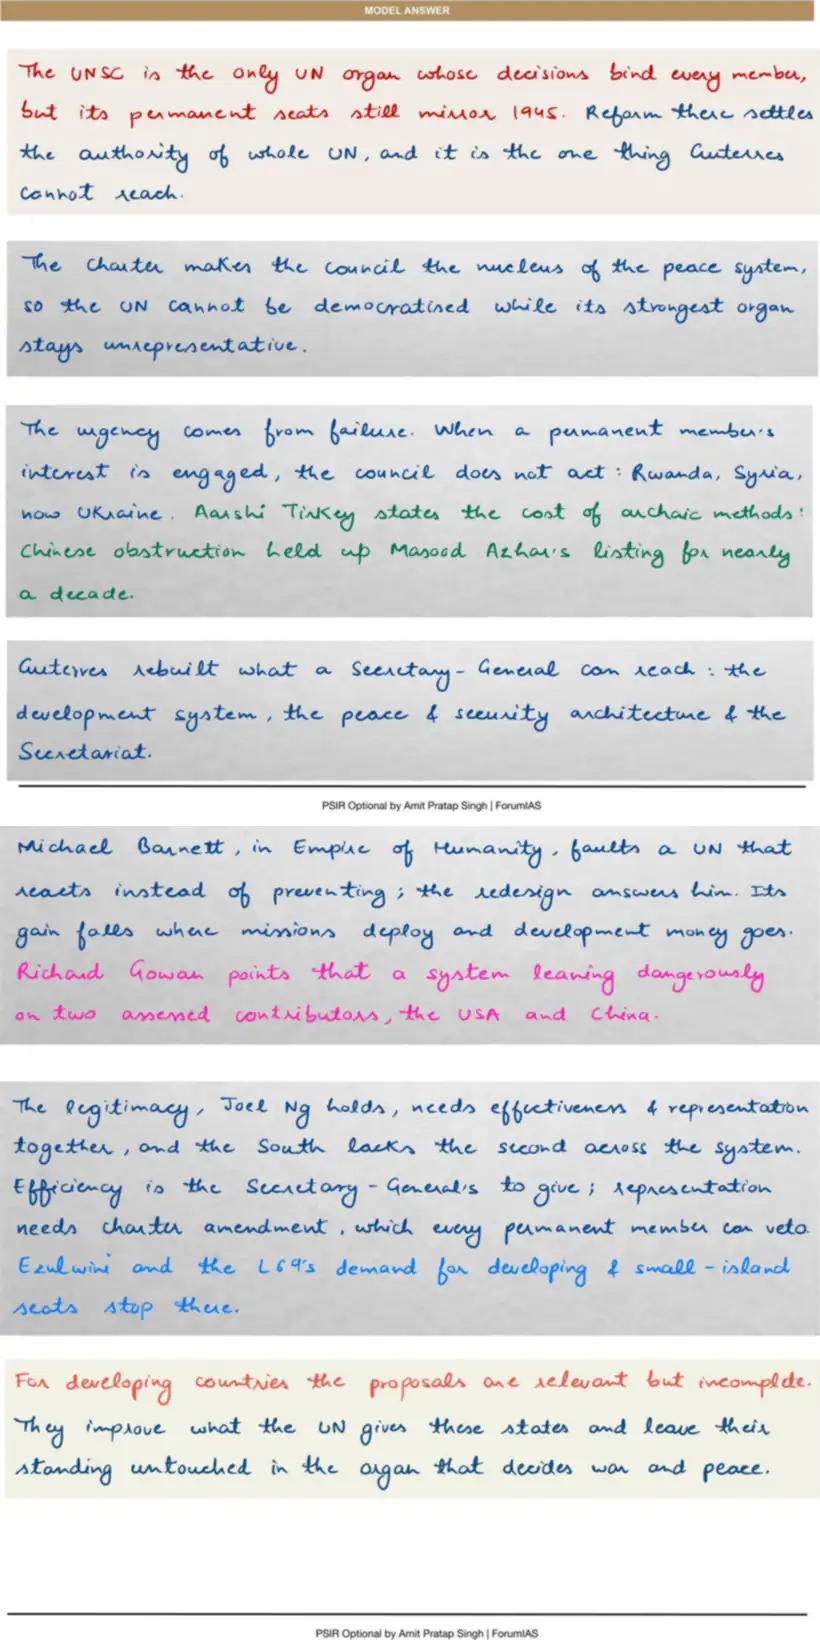 MODEL ANSWER
The UNSC is the only UN organ whose decisions bind every member,
but its permanent seats still mirror 1945. Reform there settles
the authority of whole UN, and it is the one thing Guterres
cannot reach.
The Charter makes the council the nucleus of the peace system,
so the UN cannot be democratised while its strongest organ
stays unrepresentative.
The urgency comes from failure. When a permanent member's
interest is engaged, the council does not act: Rwanda, Syria,
now Ukraine. Aarshi Tirkey states the cost of archaic methods:
Chinese obstruction held up Masood Azhar's listing for nearly
a decade.
Guterres rebuilt what a Secretary-General can reach: the
development system, the peace & security architecture & the
Secretariat.
PSIR Optional by Amit Pratap Singh | ForumIAS
Michael Barnett, in Empire of Humanity, faults a UN that
reacts instead of preventing; the redesign answers him. Its
gain falls where missions deploy and development money goes.
Richard Gowan points that a system leaning dangerously
on two assessed contributors, the USA and China.
The legitimacy, Joel Ng holds, needs effectiveness & representation
together, and the South lacks the second across the system.
Efficiency is the Secretary-General's to give; representation
needs charter amendment, which every permanent member can veto.
Ezulwini and the L69's demand for developing & small-island
seats stop there.
For developing countries the proposals are relevant but incomplete.
They improve what the UN gives these states and leave their
standing untouched in the organ that decides war and peace.
PSIR Optional by Amit Pratap Singh | ForumIAS